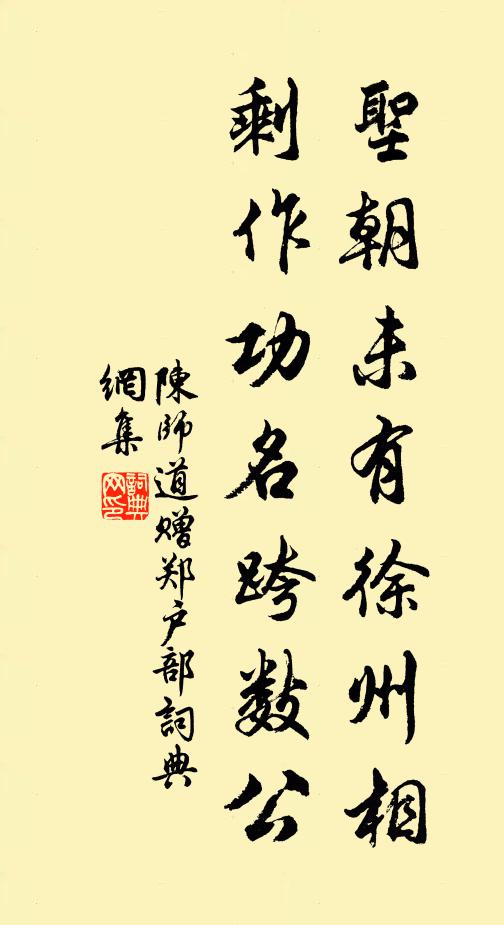 聖朝未有徐州相
剩作功名跨數公
陳師道贈郑户部詞典
網集
詞典
网印